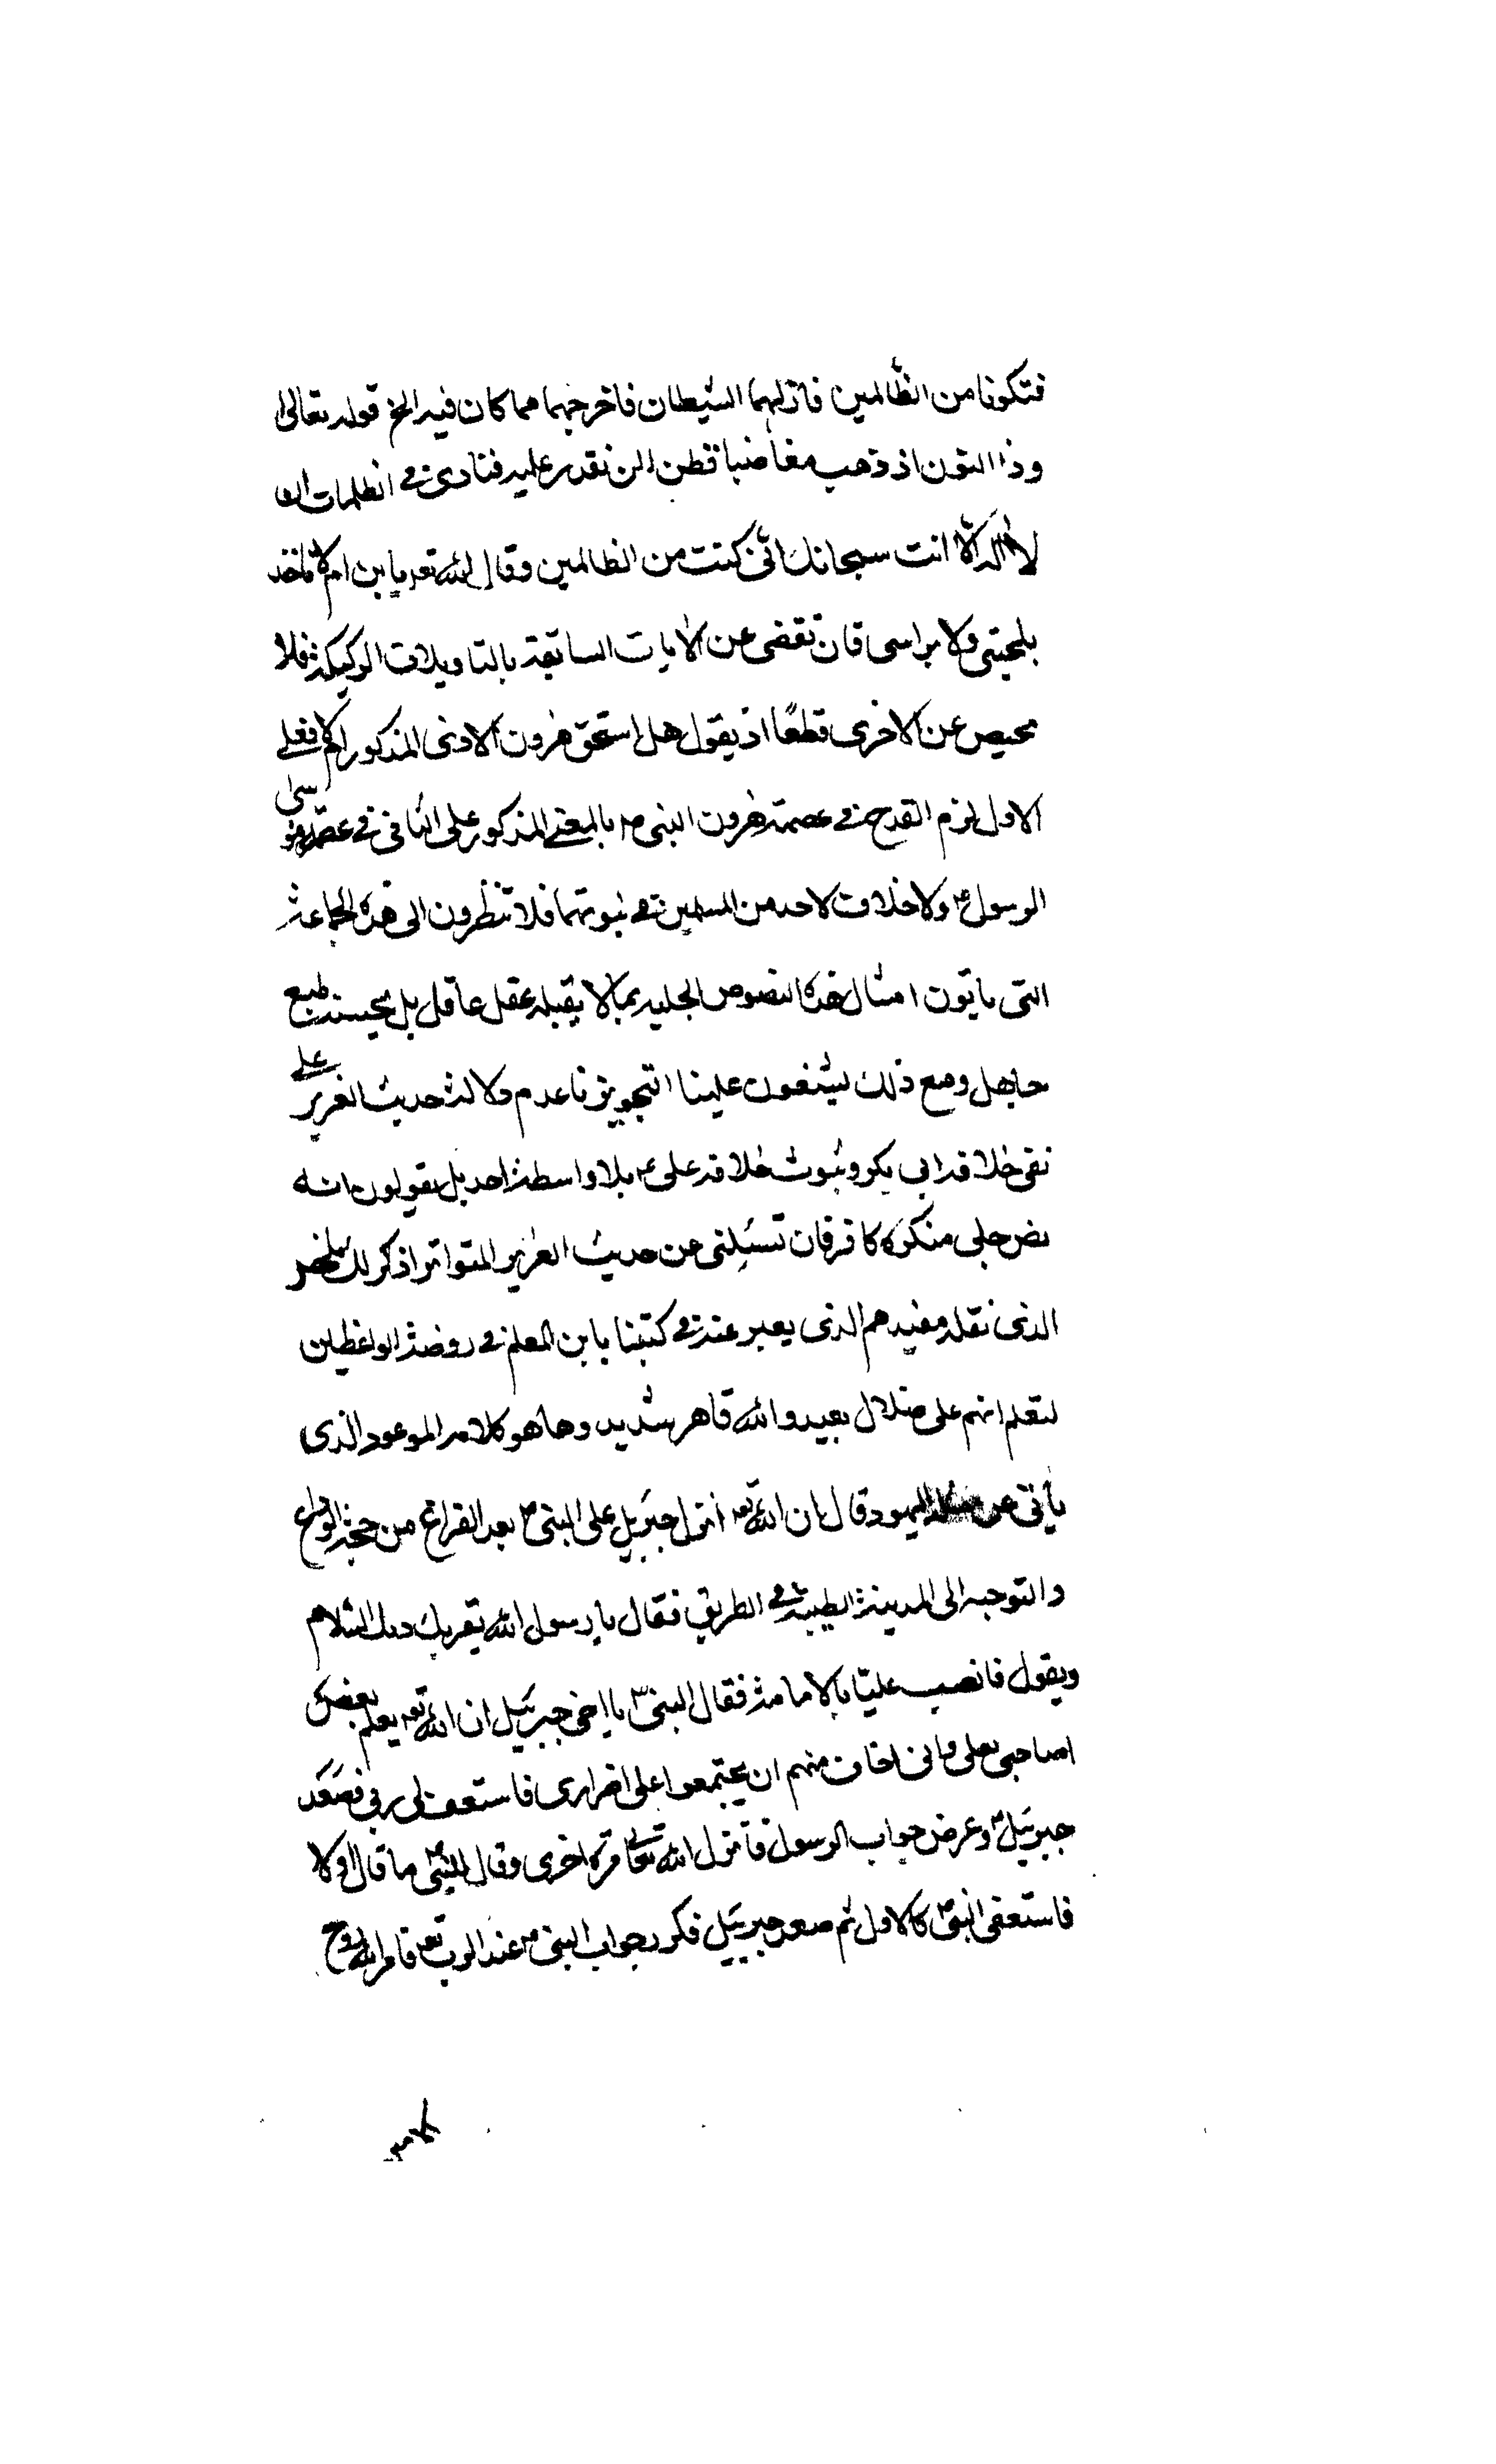 فتكونا من الظالمين فازلهما الشيطان فاخرجهما مما كان فيه الخ قوله تعالى
وذا النون اذ ذهب مغاضبا فظن ان لن نقدر عليه فنادى في الظلمات ان
لا اله الا انت سبحانك انى كنت من الظالمين وقال الله تعه يابن ام لا تاخذ
بلحيتى ولا براسى فان تفصى عن الايات السابقة بالتاويلات الركيكة فلا
محيص عن الاخرى قطعًا اذ يقول هل استحق هرون الاذى المذكور ام لا فعلى
الاول لزم القدح في عصمة هرون النبى ع م بالمعنى المذكور على الثانى في عصمة موسى
الرسول ع ولا خلاف لاحد من المسلمين في نبوتهما فلا تنظرون الى هذه الجماعة
التى ياتون امثال هذه النصوص الجلية بما لا يقبله عقل عاقل بل يحيسنه طبع
جاهل ومع ذلك يشنعون علينا التجويزنا عدم دلالة حديث الغرير على
نفى خلافة ابى بكر وثبوت خلافة على ع بلا واسطة احد بل يقولون انه
نص جلى منكره كافر فان تسئلنى عن حديث الغرير المتواتر اذكر لك ملخص
الذى نقله مفيدهم الذى يعبر عنه في كتبنا بابن المعلم في روضة الواعظين
لتعلم انهم على ضلال بعيد والله قاهر شديد وها هو كلامه الموعود الذى
يأتى عن اليهود قال ان الله تعه انزل جبريل على النبى ص بعد الفراغ من حجة الوداع
والتوجه الى المدينة الطيبة في الطريق فقال يا رسول الله يقريك ربك السّلام
ويقول فانصب عليّا بالامامة فقال النبى ص يا اخى جبرئيل ان الله تعه يعلم بغض
اصاحبى بعلى وانى اخاف منهم ان يجتمعوا على اضرارى فاستعف لى ربى فصَعَد
جبرئيل وعرض جواب الرسول فانزل الله تعالى مرة اخرى وقال للنبى ص ما قال اولا
فاستعفى النبى ص كالاول ثم صعد جبرئيل فكرر جواب النبى ص عند الرب تعه فامر الله روح